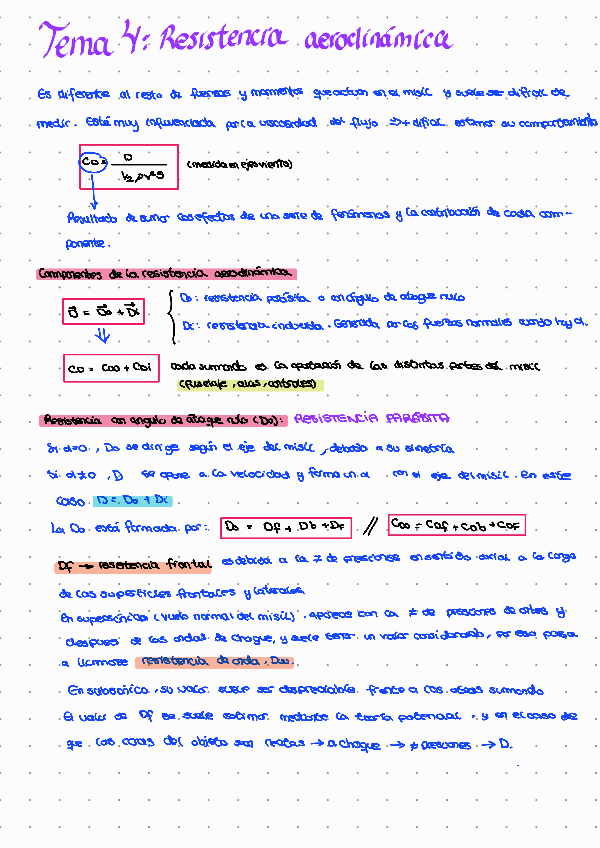 Tema 4: Resistencia aerodinámica
Es diferente al resto de fuerzas y momentos que actúan en el misil y suele ser difícil de
medir. Está muy influenciada por la viscosidad del flujo => + difícil estimar su comportamiento
CD = D / 1/2 ρv²S (medida en ejes viento)
Resultado de sumar los efectos de una serie de fenómenos y la contribución de cada com-
ponente.
Componentes de la resistencia aerodinámica
D = Do + Di
Do: resistencia parásita o en ángulo de ataque nulo
Di: resistencia inducida. Generada por las fuerzas normales cuando hay α.
CD = CDo + CDi
cada sumando es la aportación de las distintas partes del misil
(fuselaje, alas, controles)
Resistencia con angulo de ataque nulo (Do): RESISTENCIA PARÁSITA
Si α=0, Do se dirige según el eje del misil, debido a su simetría
Si α≠0, D se opone a la velocidad y forma un α con el eje del misil. En este
caso D = Do + Di
La Do está formada por: Do = Df + Db + DF // CDo = CDf + CDb + CDF
Df → resistencia frontal es debida a la ≠ de presiones en sentido axial a lo largo
de las superficies frontales y laterales
En supersónico (vuelo normal del misil), aparece con la ≠ de presiones de antes y
después de las ondas de choque, y suele tener un valor considerable, por eso pasa
a llamarse resistencia de onda, Dw.
En subsónico, su valor suele ser despreciable frente a los otros sumandos
El valor de Df se suele estimar mediante la teoría potencial, y en el caso de
que las caras del objeto sean rectas → α choque → ≠ presiones → D.